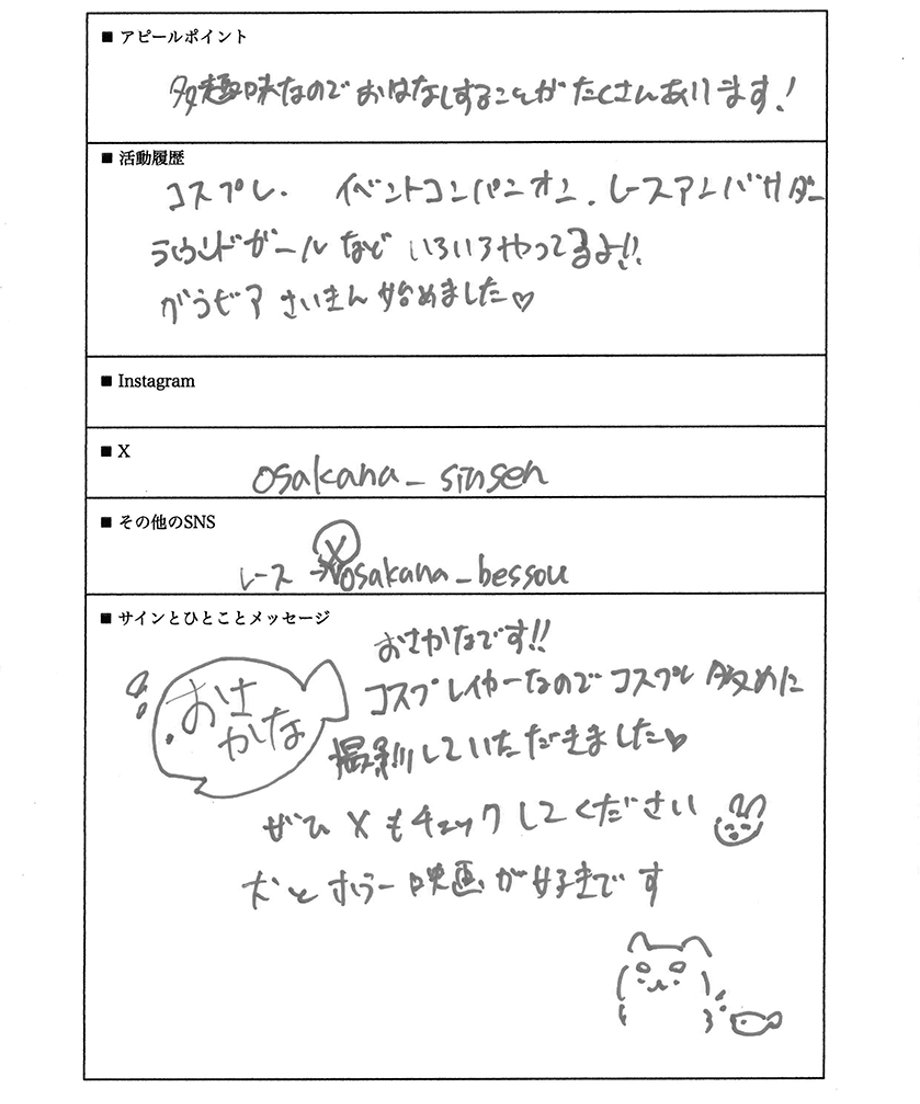 ■ アピールポイント
多趣味なのでおはなしすることがたくさんあります!
■ 活動履歴
コスプレ. イベントコンパニオン. レースアンバサダー
ラウンドガールなど いろいろやってるよ!!
グラビア さいきん始めました♡
■ Instagram
■ X
osakana_sinsen
■ その他のSNS
X
レース→ osakana_bessou
■ サインとひとことメッセージ
おさかなです!!
コスプレイヤーなのでコスプレ 多めに
おさ
かな
撮影していただきました♡
ぜひ Xもチェックしてください
犬とホラー映画が好きです